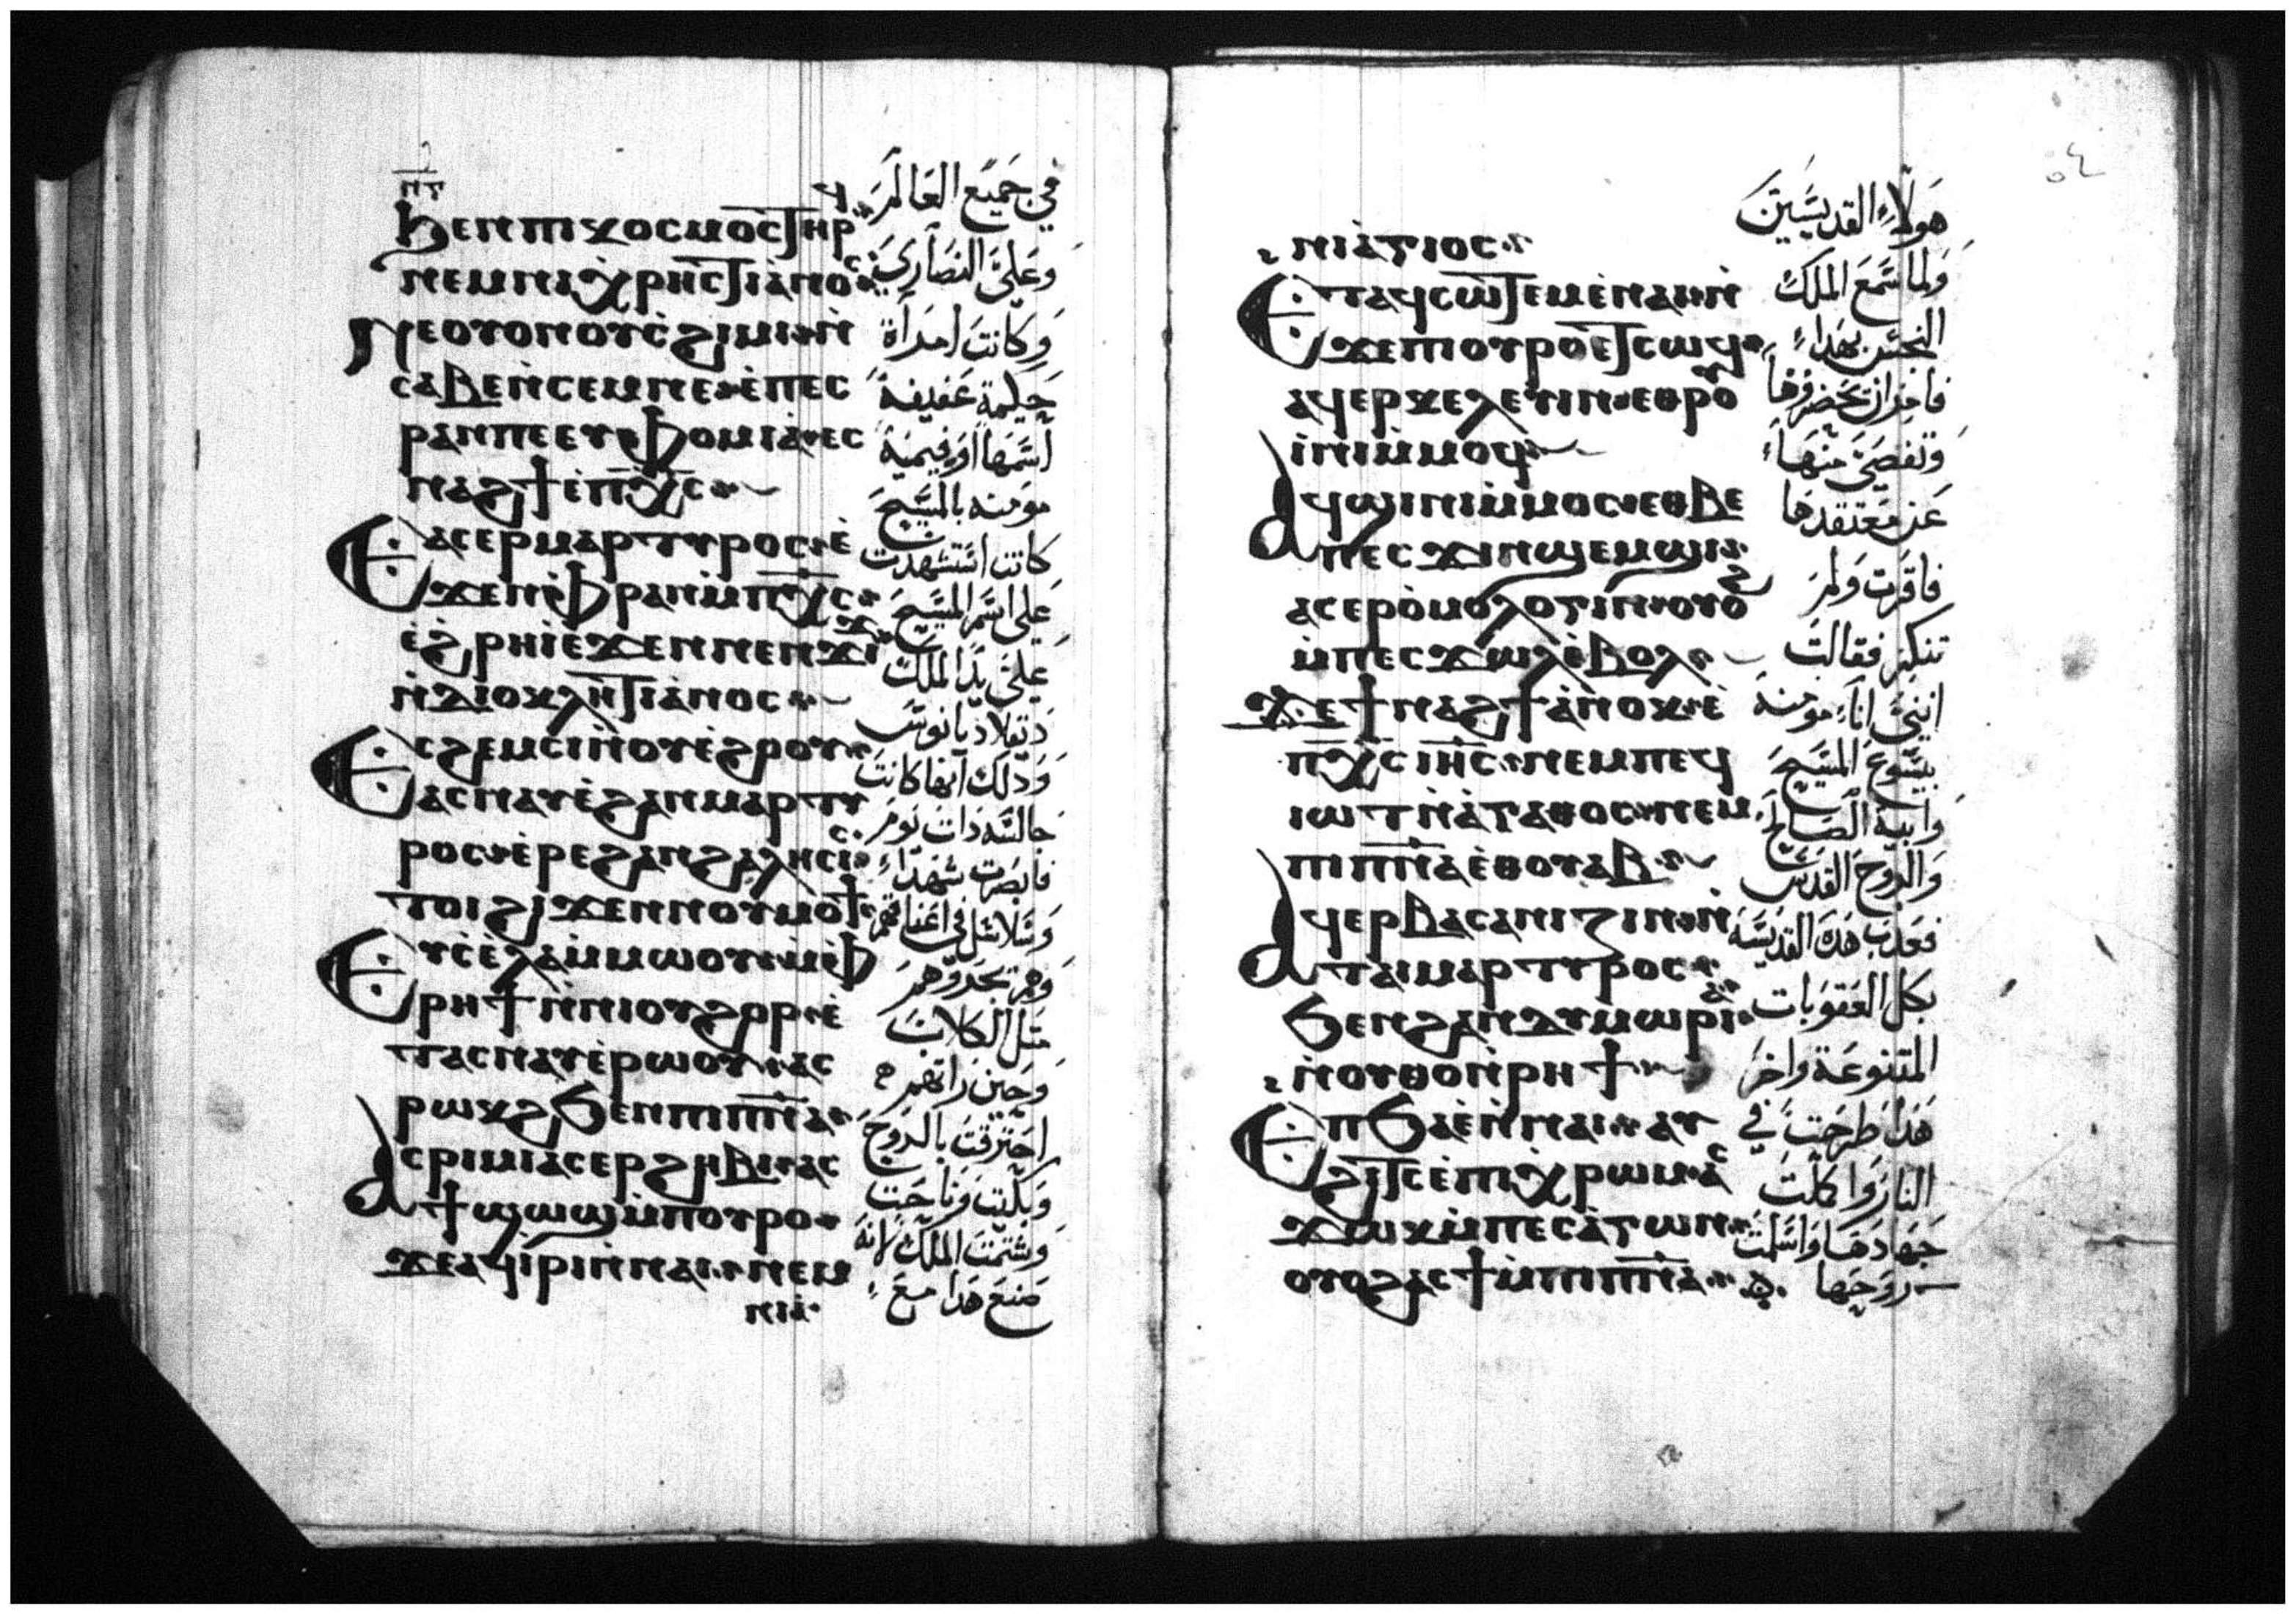 ⲛⲅ
ϧⲉⲛⲡⲓⲕⲟⲥⲙⲟⲥⲧⲏⲣϥ
ⲛⲉⲙⲛⲓⲭⲣⲏⲥⲧⲓⲁⲛⲟⲥ
ⲛⲉⲟⲩⲟⲛⲟⲩⲥϩⲓⲙⲓ ⲛ̀
ⲥⲁⲃⲉⲛ̀ⲥⲉⲙⲛⲉ ⲉ̀ⲡⲉⲥ
ⲣⲁⲛⲡⲉⲉⲩⲫⲟⲙⲓⲁ̀ ⲉⲥ
ⲛⲁϩϯⲉ̀ⲡⲭ̅ⲥ̅
ⲉⲁⲥⲉⲣⲙⲁⲣⲧⲩⲣⲟⲥ ⲉ̀
ϫⲉⲛⲫⲣⲁⲛⲙ̀ⲡⲭ̅ⲥ̅
ⲉ̀ϩⲣⲏⲓⲉϫⲉⲛⲛⲉⲛϫⲓϫ
ⲛ̀ⲇⲓⲟⲕⲗⲏⲧⲓⲁⲛⲟⲥ
ⲉⲥϩⲉⲙⲥⲓⲛ̀ⲟⲩⲉ̀ϩⲟⲟⲩ
ⲉⲁⲥⲛⲁⲩⲉ̀ϩⲁⲛⲙⲁⲣⲧⲩ
ⲣⲟⲥ ⲉ̀ⲣⲉϩⲁⲛϩⲁⲗⲏⲥⲓⲥ
ⲧⲟⲓϩⲓϫⲉⲛⲛⲟⲩⲙⲟϯ
ⲉⲩⲥⲉ̀ⲗⲁⲙ̀ⲙⲱⲟⲩ ⲙ̀ⲫ
ⲣⲏϯⲛ̀ⲛⲓⲟⲩϩⲟⲣ ⲉ̀
ⲧⲁⲥⲛⲁⲩⲉ̀ⲣⲱⲟⲩ ⲁⲥ
ⲣⲱⲕϩϧⲉⲛⲡⲓⲡ̅ⲛ̅ⲁ̅
ⲁⲥⲣⲓⲙⲓⲁⲥⲉⲣϩⲏⲃⲓ ⲁⲥ
ϯϣⲱϣⲙ̀ⲡⲟⲩⲣⲟ
ϫⲉⲁϥⲓ̀ⲣⲓⲛ̀ⲛⲁⲓ ⲛⲉⲙ
ⲛⲓⲁ̀
في جميع العالم
وعلى النصارى
وكانت امرأة
حكيمة عفيفة
اسمها اوفيمية
مومنه بالمسيح
كانت استشهدت
على اسم المسيح
على يد الملك
دقلاديانوس
وذلك انها كانت
جالسه ذات يوم
فابصرت شهداء
وسلاسل في اعناقهم
وهم يجروهم
مثل الكلاب
وحين راتهم
احترقت بالروح
وبكت وناحت
وشتمت الملك لانه
صنع هذا مع
٥٤
ⲛⲓⲁ̀ⲅⲓⲟⲥ
ⲉⲧⲁϥⲥⲱⲧⲉⲙⲉ̀ⲛⲁⲓ ⲛ̀
ϫⲉⲡⲟⲩⲣⲟⲉⲧⲥⲱϥ
ⲁϥⲉⲣⲕⲉⲗⲉⲩⲓⲛ ⲉⲑⲣⲟⲩ
ⲓ̀ⲛⲓⲙ̀ⲙⲟⲥ
ⲁϥϣⲓⲛⲓⲙ̀ⲙⲟⲥ ⲉⲑⲃⲉ
ⲡⲉⲥϫⲓⲛϣⲉⲙϣⲓ
ⲁⲥⲉⲣⲟ̀ⲙⲟⲗⲟⲅⲓⲛ ⲟⲩⲟϩ
ⲙ̀ⲡⲉⲥϫⲱⲗⲉ̀ⲃⲟⲗ
ϫⲉϯⲛⲁϩϯⲁ̀ⲛⲟⲕ ⲉ̀
ⲡⲭ̅ⲥ̅ ⲓⲏ̅ⲥ̅ ⲛⲉⲙⲡⲉϥ
ⲓⲱⲧⲛ̀ⲁ̀ⲅⲁⲑⲟⲥ ⲛⲉⲙ
ⲡⲓⲡ̅ⲛ̅ⲁ̅ⲉ̀ⲑⲟⲩⲁⲃ
ⲁϥⲉⲣⲃⲁⲥⲁⲛⲓⲍⲓⲛ ⲛ̀
ⲧⲁⲓⲙⲁⲣⲧⲩⲣⲟⲥ
ϧⲉⲛϩⲁⲛⲇⲩⲙⲱⲣⲓⲁ̀
ⲛ̀ⲟⲩⲑⲟⲛ̀ⲣⲏϯ
ⲉⲡϧⲁⲉ̀ⲛ̀ⲛⲁⲓ ⲁⲩ
ϩⲓⲧⲥⲉ̀ⲡⲓⲭⲣⲱⲙ ⲁⲥ
ϫⲱⲕⲙ̀ⲡⲉⲥⲁ̀ⲅⲱⲛ
ⲟⲩⲟϩⲁⲥϯⲙ̀ⲡⲓⲡ̅ⲛ̅ⲁ̅
هولاء القديسين
ولما سمع الملك
النجس بهذاء
فامر ان تحضر
وتفصى منها
عن معتقدها
فاقرت ولم
تنكر فقالت
انني اناء مومنه
بيسوع المسيح
وابيه الصالح
والروح القدس
فعذب هذه القديسه
بكل العقوبات
المتنوعة واخر
هذا طرحت في
النار واكملت
جهادها واسلمت
روحها